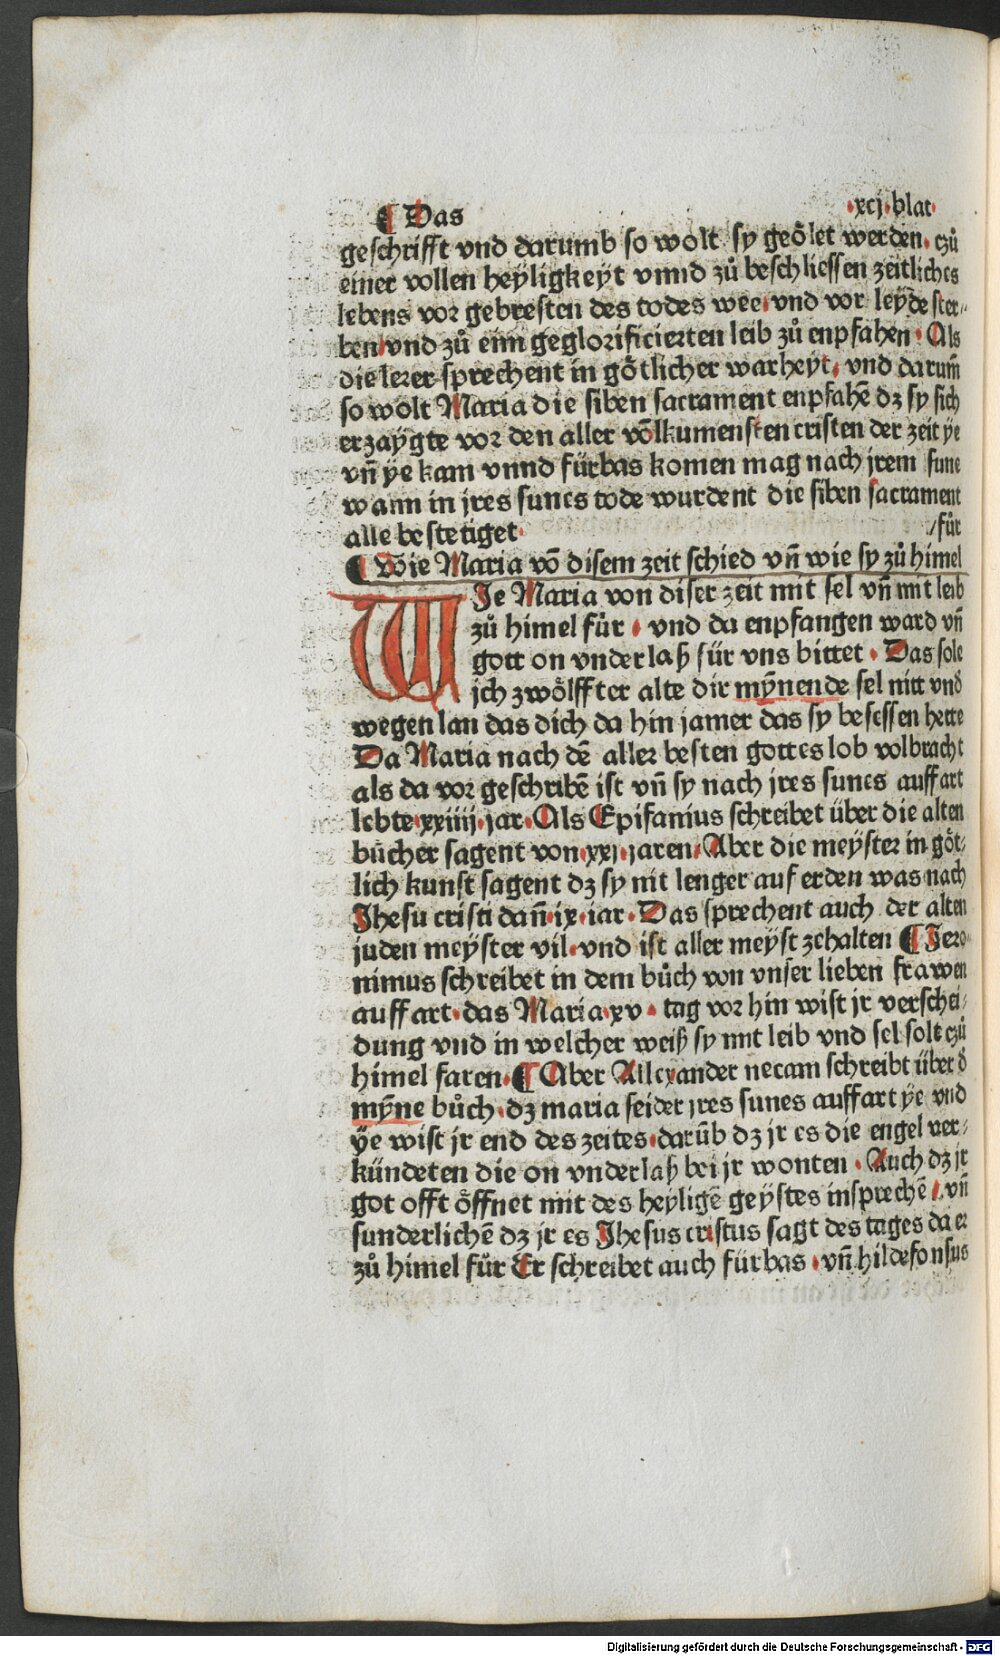 ¶ Das ·xcj·blat·
geschrifft vnd darumb so wolt sy geölet werden· czů
einer vollen heyligkeyt vnnd zů beschliessen zeitliches
lebens vor gebresten des todes wee·vnd vor leyde ster⸗
ben·vnd zů eim geglorificierten leib zů enpfahen· Als
die lerer sprechent in götlicher warheyt· vnd darum̄
so wolt Maria die siben sacrament enpfahē dz sy sich
erzaygte vor den aller vōlkumensten cristen der zeit ÿe
vn̄ ÿe kam vnnd fürbas komen mag nach jrem sune
wann in jres sunes tode wurdent die siben sacrament
alle bestetiget·
/für
¶ Wie Maria vō disem zeit schied vn̄ wie sy zů himel
WJe Maria von diser zeit mit sel vn̄ mit leib
zů himel für · vnd da enpfangen ward vn̄
gott on vnderlaß für vns bittet · Das sole
jch zwölffter alte dir mÿnende sel nitt vnd
wegen lan das dich da hin jamer das sy besessen hette
Da Maria nach dē aller besten gottes lob volbracht
als da vor geschribē ist vn̄ sy nach jres sunes auffart
lebte·xxiiij·jar· Als Epifanius schreibet über die alten
bůcher sagent von·xxj·jaren· Aber die meyster in göt⸗
lich kunst sagent dz sy nit lenger auf erden was nach
Jhesu cristi dan̄·ix·iar· Das sprechent auch der alten
juden meyster vil·vnd ist aller meyst zehalten ¶ Jero⸗
nimus schreibet in dem bůch von vnser lieben frawen
auffart·das Maria·xv· tag vor hin wist jr verschei⸗
dung vnd in welcher weiß sy mit leib vnd sel solt czů
himel faren·¶ Aber Allexander necam schreibt über d̄
mÿne bůch·dz maria seider jres sunes auffart ÿe vnd
ÿe wist jr end des zeites·darūb dz jr es die engel ver⸗
kündeten die on vnderlaß bei jr wonten · Auch dz jr
got offt öffnet mit des heyligē geystes insprechē ·vn̄
sunderlichē dz jr es Jhesus cristus sagt des tages da er
zů himel für Er schreibet auch fürbas ·vn̄ hildefonsus
Digitalisierung gefördert durch die Deutsche Forschungsgemeinschaft - DFG